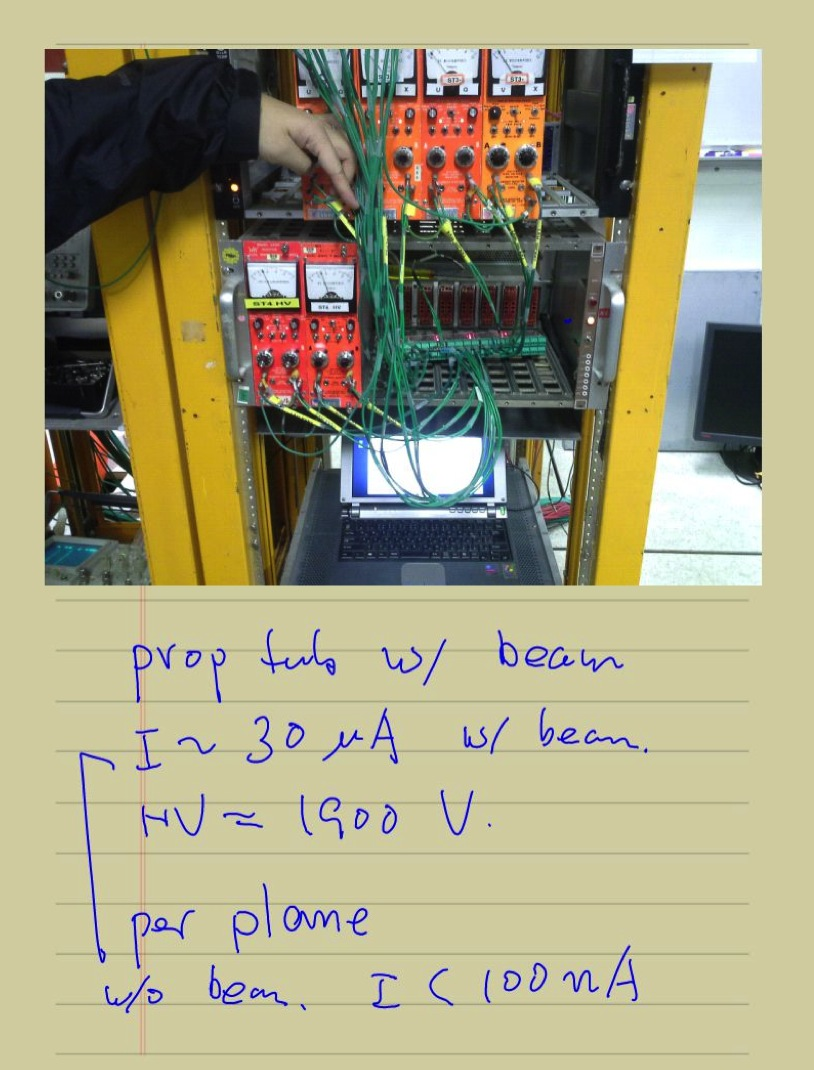 U
X
ST3-
U
ST3-
X
A
B
ST4 HV
ST4 HV
prop tube w/ beam
I ~ 30 μA w/ beam.
HV ≈ 1900 V.
per plane
w/o beam. I < 100 nA